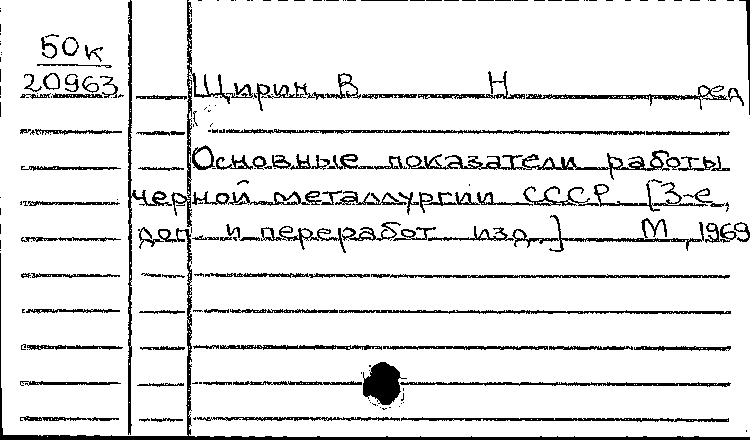 50к
20963 Щирин, В Н , ред
Основные показатели работы
черной металлургии СССР. [3-е,
доп. и переработ изд.] М, 1969